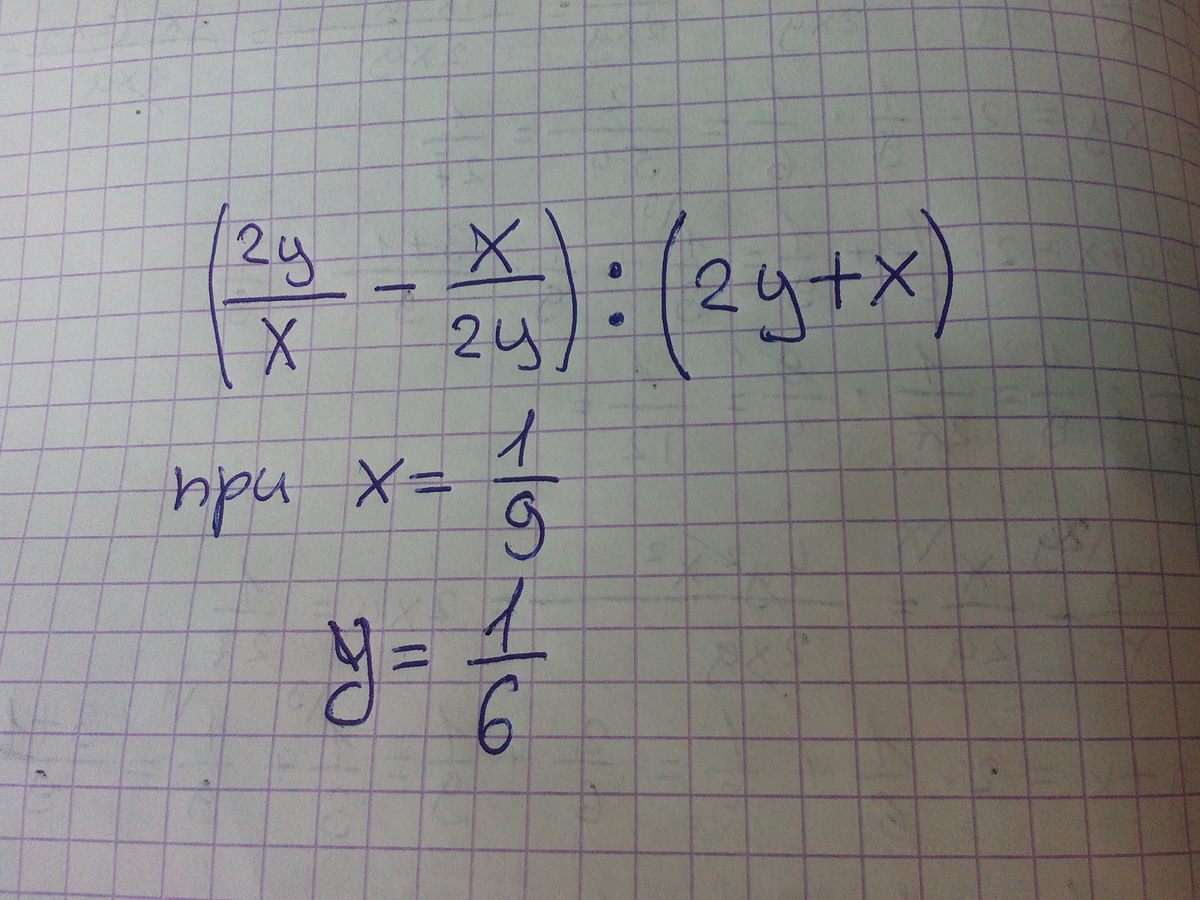 (2y/x - x/2y) : (2y+x)
при x = 1/9
y = 1/6